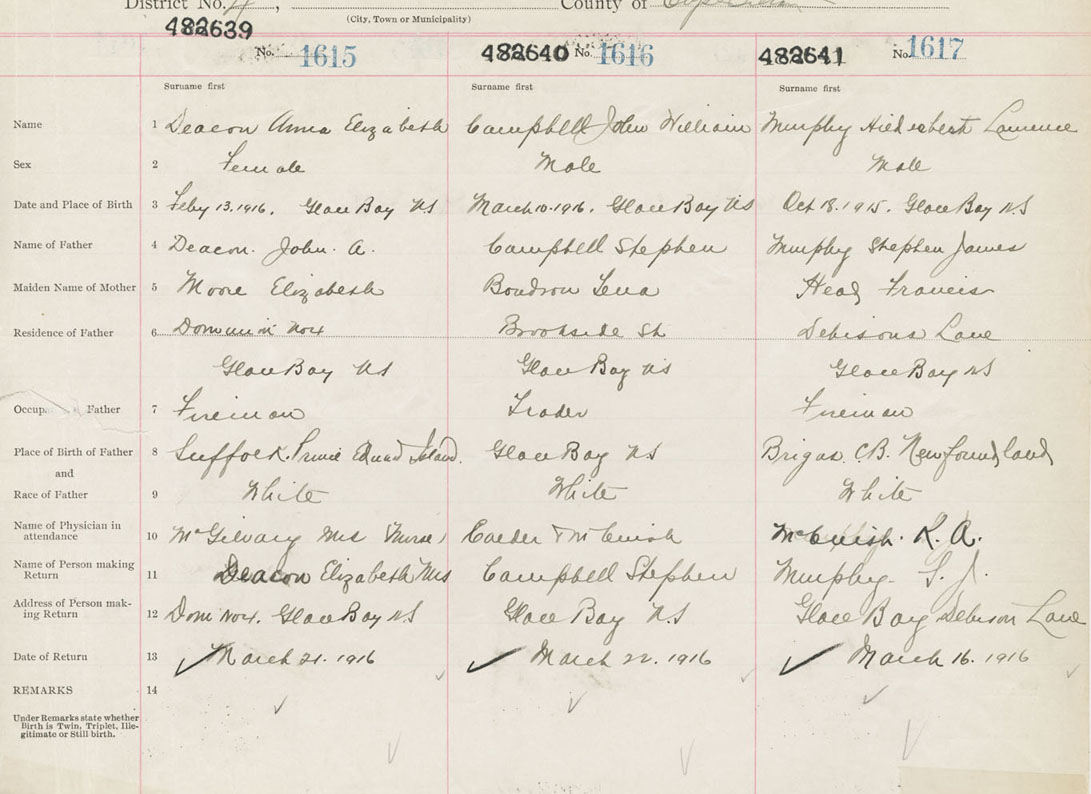 District No. 4, County of
(City, Town or Municipality)
482639 No. 1615 482640 No. 1616 482641 No. 1617
Surname first Surname first Surname first
Name 1 Deacon Anna Elizabeth Campbell John William Murphy Laurence
Sex 2 Female Male Male
Date and Place of Birth 3 Feby 13. 1916. Glace Bay NS March 10. 1916. Glace Bay NS Oct 18. 1915. Glace Bay N.S
Name of Father 4 Deacon. John. A. Campbell Stephen Murphy Stephen James
Maiden Name of Mother 5 Moore Elizabeth Boudron Lena Head Francis
Residence of Father 6 Dominion No 4 Brookside St Lane
Glace Bay NS Glace Bay NS Glace Bay NS
Occup Father 7 Fireman Trader Fireman
Place of Birth of Father 8 Suffolk. Prince Edward Island. Glace Bay N.S Brigus. C.B. Newfoundland
and
Race of Father 9 White White White
Name of Physician in
attendance 10 McGilvary Mrs (Nurse) Calder & McCuish McCuish. K. A.
Name of Person making
Return 11 Deacon Elizabeth Mrs Campbell Stephen Murphy. S. J.
Address of Person mak-
ing Return 12 Dom No 4. Glace Bay N.S Glace Bay N.S Glace Bay Lane
Date of Return 13 March 21. 1916 March 22. 1916 March 16. 1916
REMARKS 14
Under Remarks state whether
Birth is Twin, Triplet, Ille-
gitimate or Still birth.